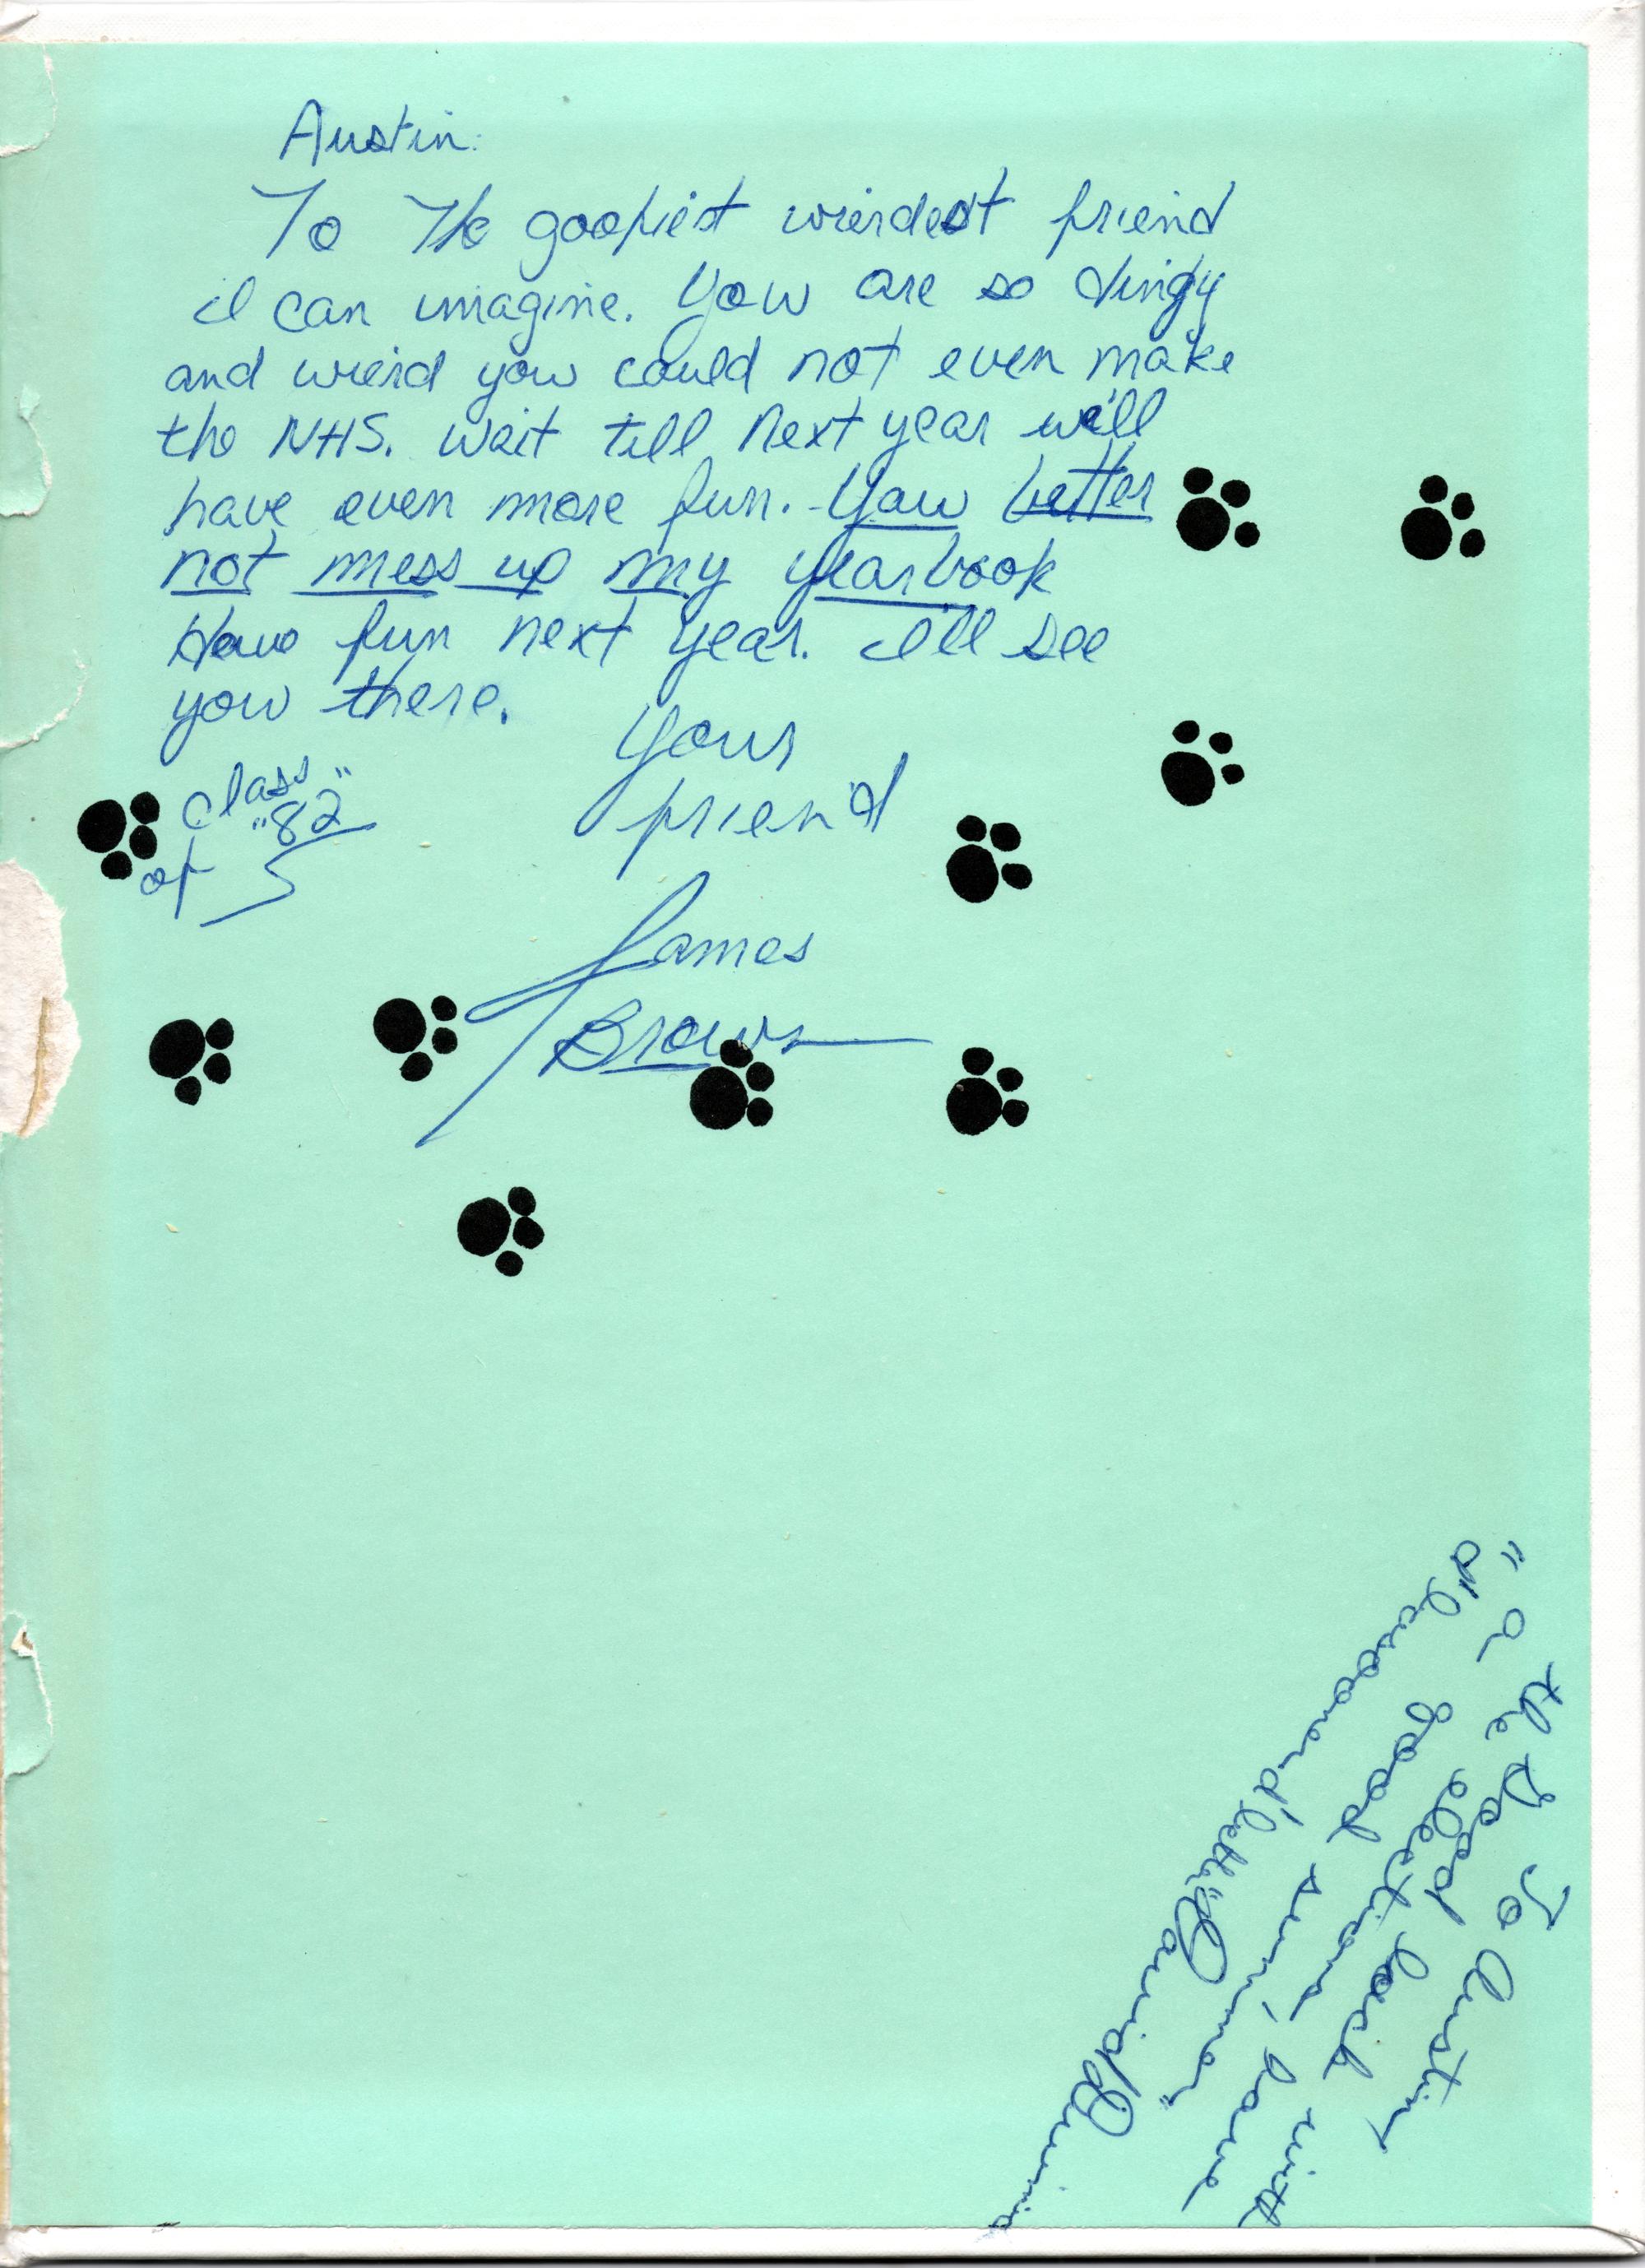 Austin:
To The goofiest wierdest friend
I can imagine. You are so dingy
and wierd you could not even make
the NHS. Wait till next year we'll
have even more fun. You better
not mess up my yearbook
Have fun next year. I'll see
you there.
Your
friend
class
of "82"
James
Brown
To Austin,
the Good luck with
elections, have
a good summer,
"
David